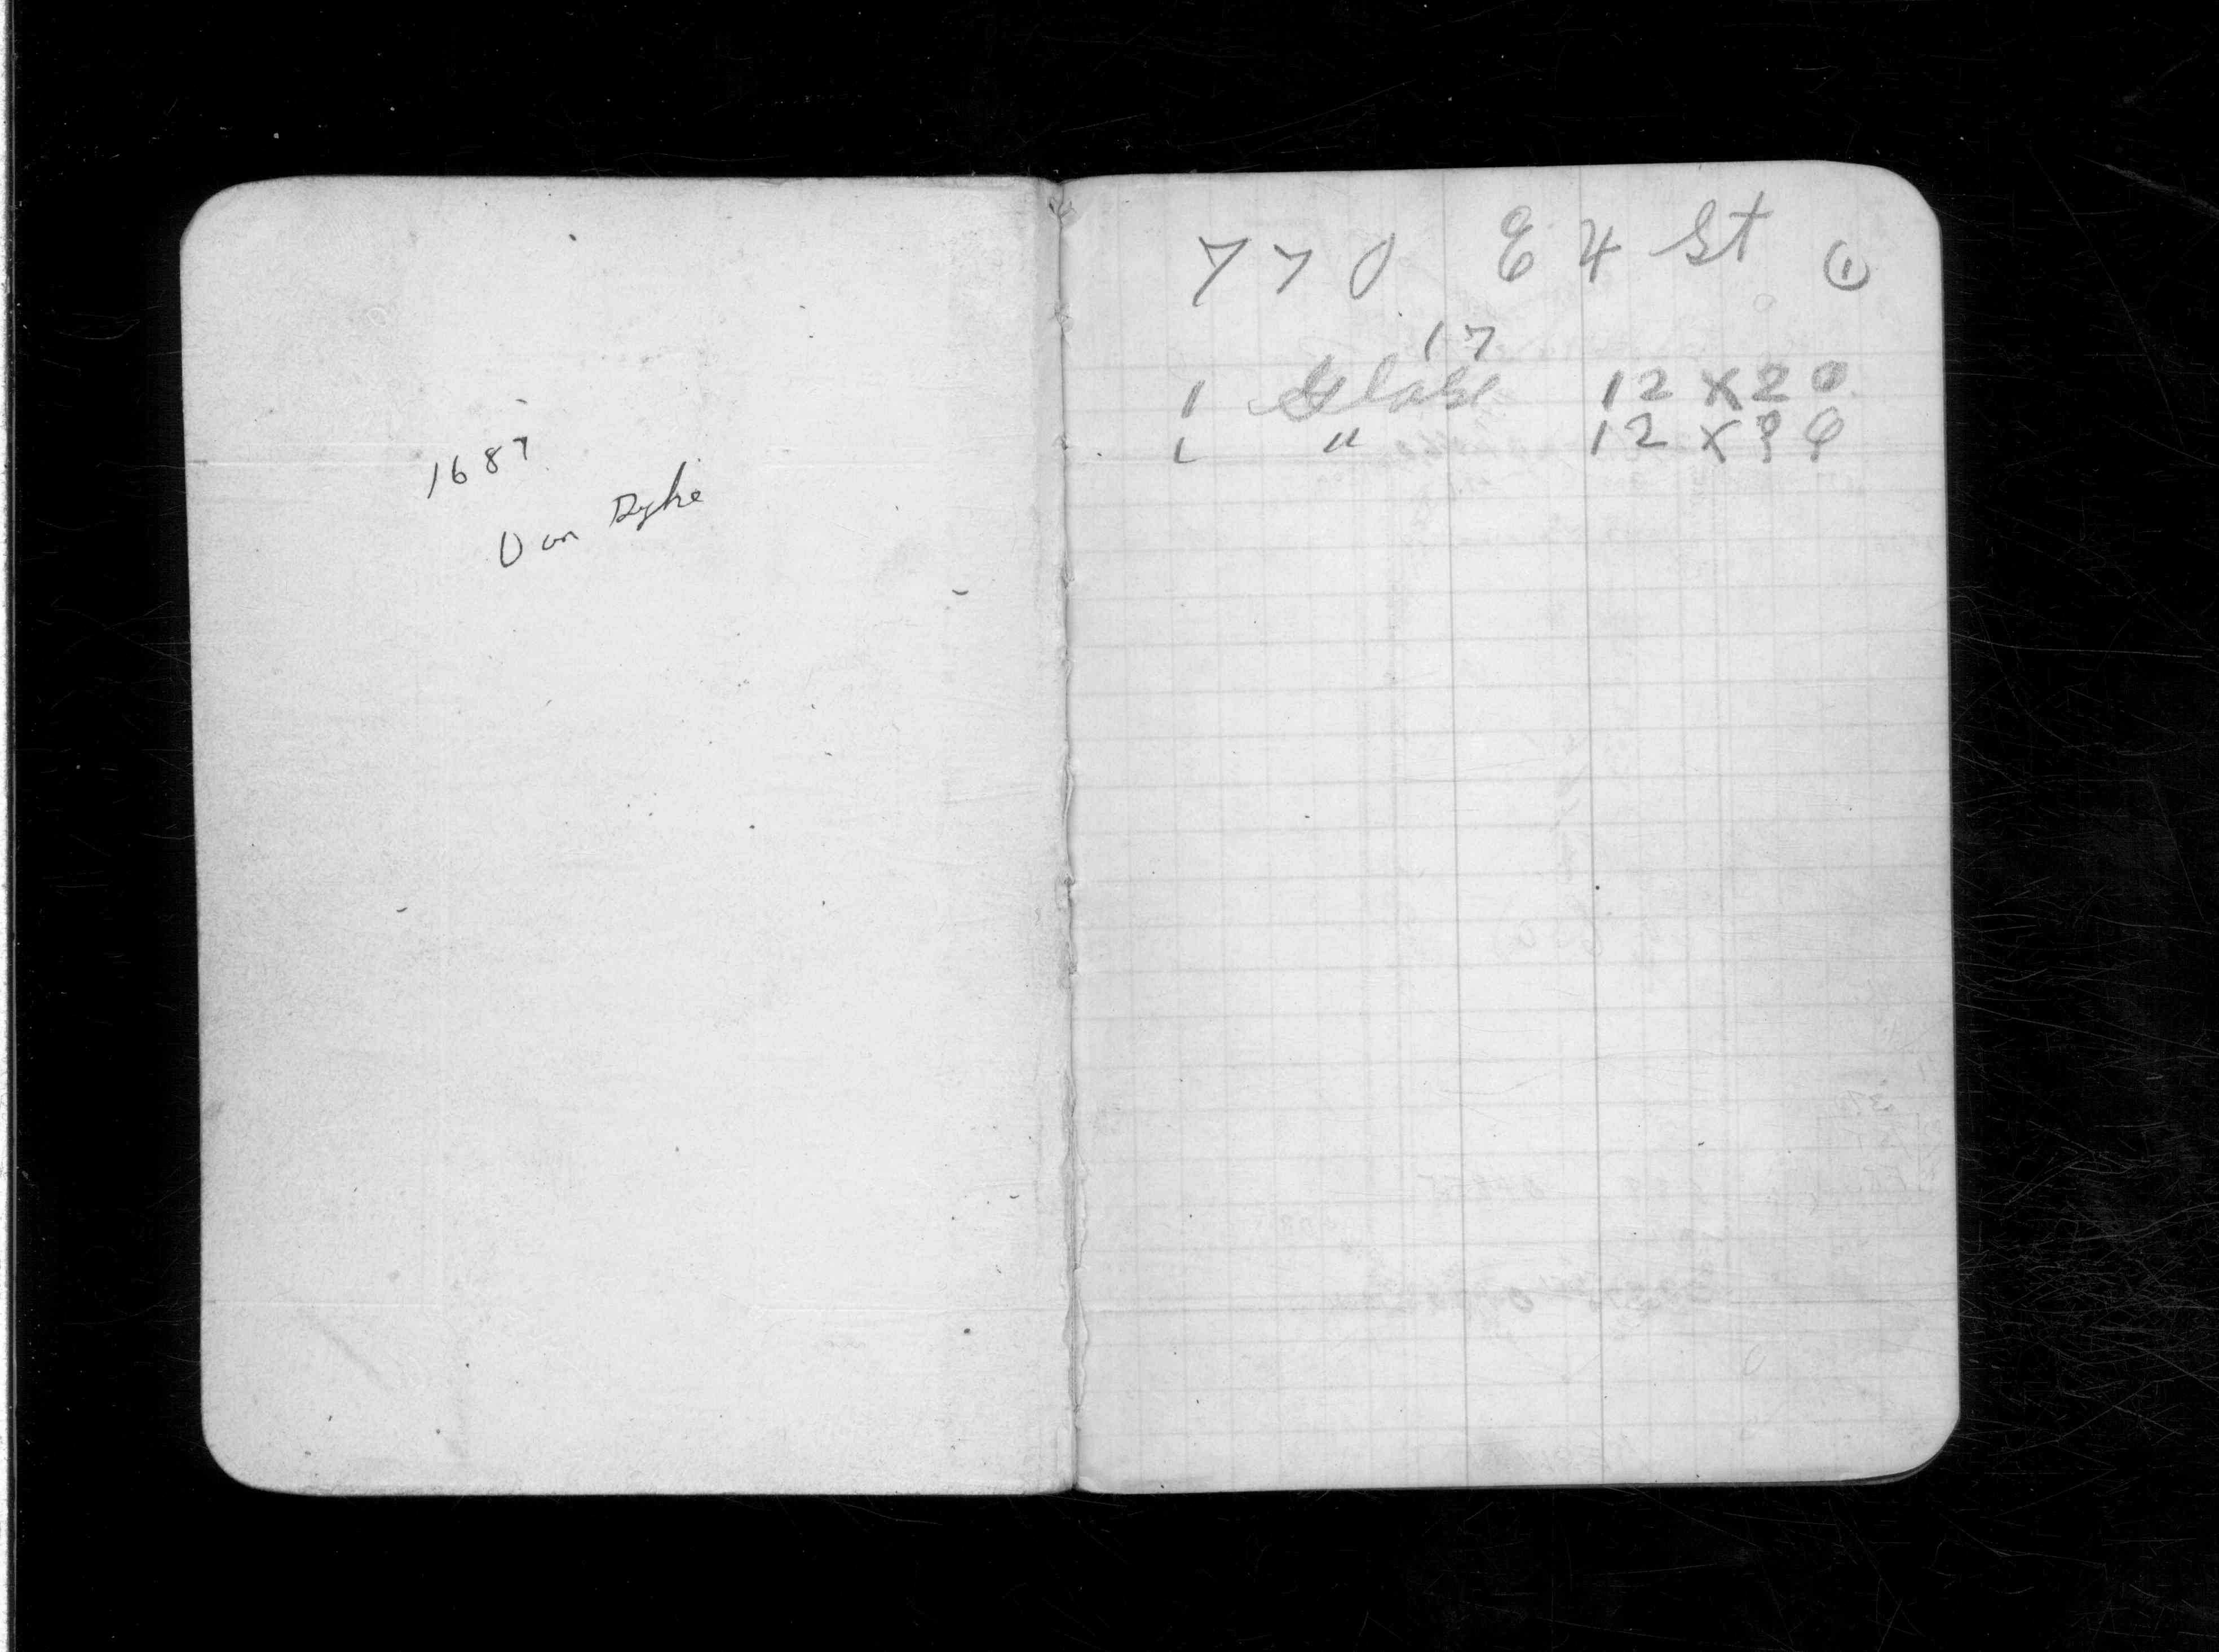 1687
Van Dyke
770 E 4 St 1
17
1 12 x 20
1 " 12 x